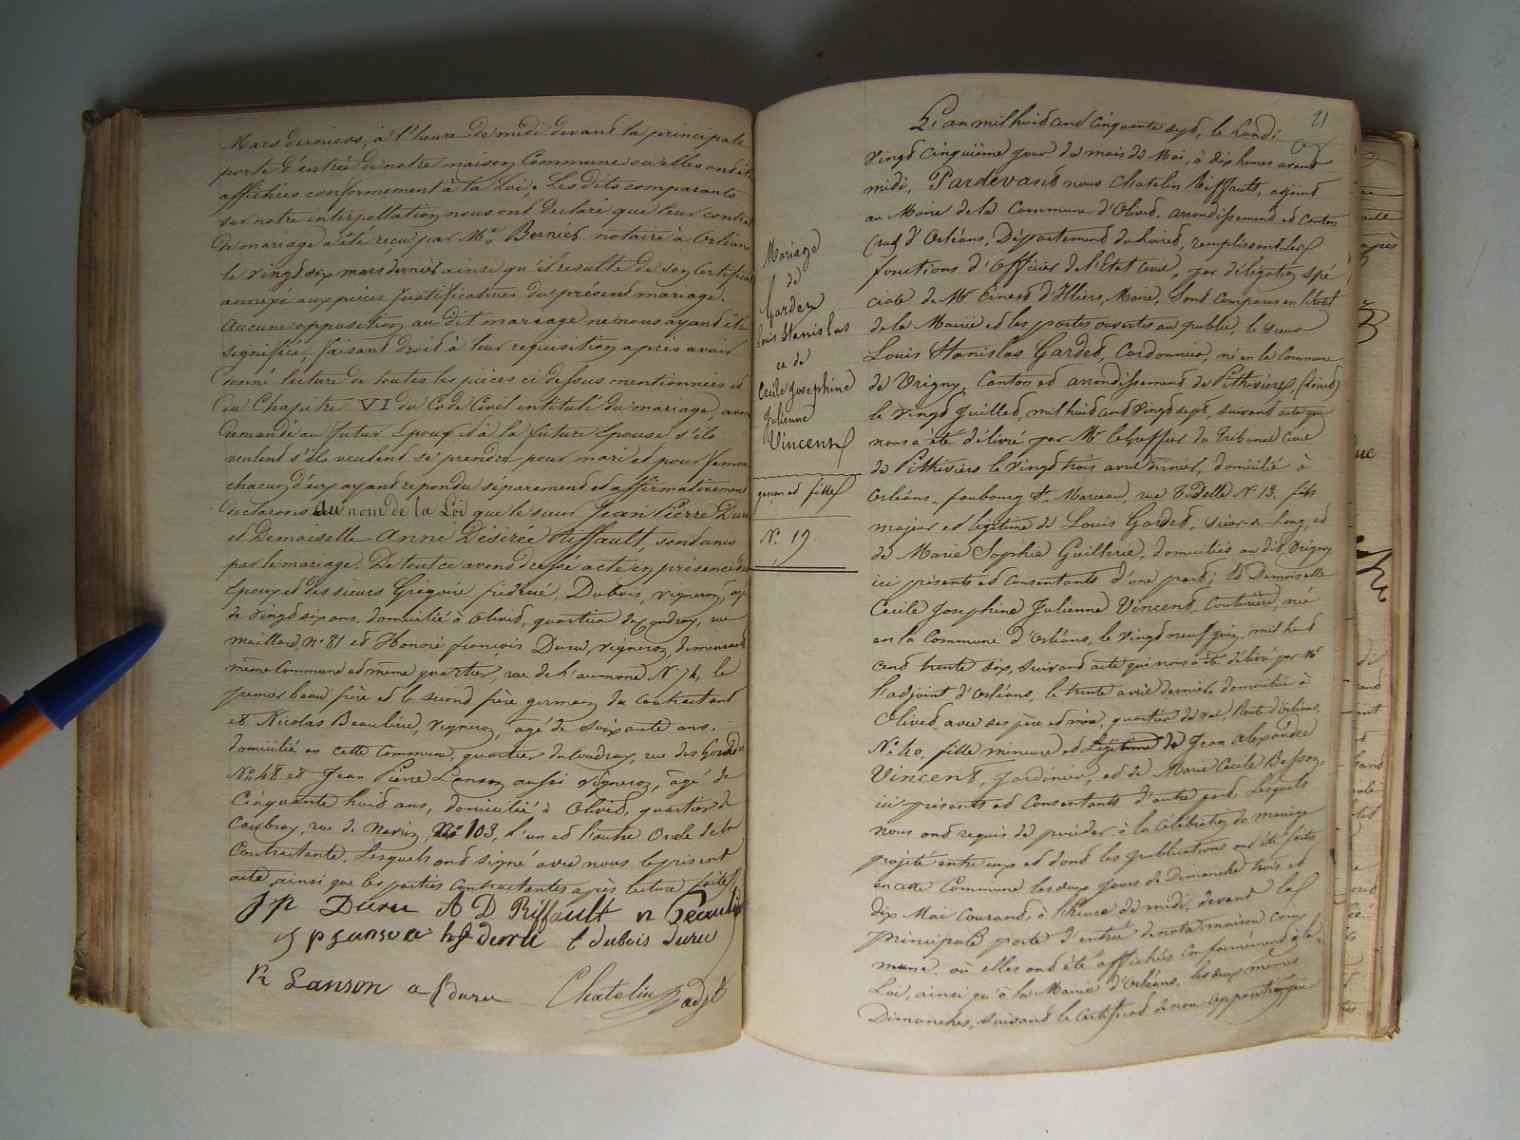 Mars derniers, à l'heure de midi devant la principale
porte d'entrée de notre maison Commune où elles ont été
affichées conformément à la Loi. Les dits comparants
sur notre interpellation nous ont déclaré que leur contrat
de mariage a été reçu par Me Bernier notaire à Orléans
le vingt six mars dernier ainsi qu'il resulte de son Certificat
annexé aux pièces justificatives du présent mariage.
Aucune opposition au dit mariage ne nous ayant été
signifiée, faisant droit à leur requisition après avoir
donné lecture de toutes les pièces ci dessus mentionnées et
du Chapitre VI du Code Civil intitulé du mariage, avons
demandé au futur Epoux et à la future Epouse s'ils
veulent s'ils veulent se prendre pour mari et pour femme
chacun d'eux ayant repondu séparement et affirmativement
declarons au nom de la Loi que le sieur Jean Pierre Duru
et Demoiselle Anne Désirée Riffault, sont unis
par le mariage. De tout ce avons dressé acte en présence des
Epoux et des sieurs Grégoire frédéric Dubois, vigneron, agé
de vingt six ans, domicilié à Olivet, quartier du Coudray, rue
maillard, No 81 et Honoré françois Duru, vigneron, demeurant
même Commune et même quartier, rue de l'aumone No 74, le
premier beau frère et le second frère germain du contractant
et Nicolas Beaulieu, vigneron, agé de soixante ans,
domicilié en cette Commune, quartier du Coudray, rue des
No 48 et Jean Pierre Lanson aussi vigneron, agé de
Cinquante huit ans, domicilié à Olivet, quartier du
Coudray, rue de No 103, l'un et l'autre Oncle de la
Contractante. Lesquels ont signé avec nous le présent
acte, ainsi que les parties contractantes après lecture faite
J p Duru A D Riffault n Beaulieu
J p Lanson hf duru f dubois duru
R Lanson a f duru Chatelin adjt
21
L'an mil huit cent cinquante sept, le Lundi
vingt cinquième jour du mois de Mai, à dix heures avant
midi, Pardevant nous Chatelin Riffault, adjoint
au Maire de la Commune d'Olivet, arrondissement et Canton
(sud) d'Orléans, Département du Loiret, remplissant les
fonctions d'Officier de l'Etat Civil, par délégation spé
ciale de Mr d'Illiers, Maire. Sont Comparus en l'hotel
de la Mairie et les portes ouvertes au public, le sieur
Louis Stanislas Gardet, Cordonnier, né en la Commune
de Vrigny, Canton et arrondissement de Pithiviers, (Loiret)
le vingt Juillet, mil huit cent vingt sept, suivant acte qui
nous a été délivré par Mr le Greffier du Tribunal Civil
de Pithiviers le vingt trois avril dernier, domicilié à
Orléans, faubourg St Marceau, rue Tudelle No 13, fils
majeur et légitime de Louis Gardet, Scieur de long, et
de Marie Sophie Guillerie, domiciliés au dit Vrigny
ici présents et Consentants d'une part; Et Demoiselle
Cecile Josephine Julienne Vincent, Couturière, née
en la Commune d'Orléans, le vingt neuf juin mil huit
cent trente six, suivant acte qui nous a été délivré par Mr
l'adjoint d'Orléans, le trente avril dernier domiciliée à
Olivet avec ses père et mère, quartier du val, Route d'Orléans,
No 40, fille mineure et légitime de Jean Alexandre
Vincent, Jardinier, et de Marie Cecile Besson,
ici présents et Consentants d'autre part. Lesquels
nous ont requis de procéder à la célébration du mariage
projeté entre eux et dont les publications ont été faites
en cette Commune les deux jours de Dimanche trois et
dix Mai Courant, à l'heure de midi, devant la
principale porte d'entrée de notre maison com
mune où elles ont été affichées conformément à la
Loi, ainsi qu'à la Mairie d'Orléans, les deux mêmes
Dimanches, suivant le certificat de non opposition que
Mariage
de
Gardet
Louis Stanislas
et de
Cecile Josephine
Julienne
Vincent
garçon et fille
No 19